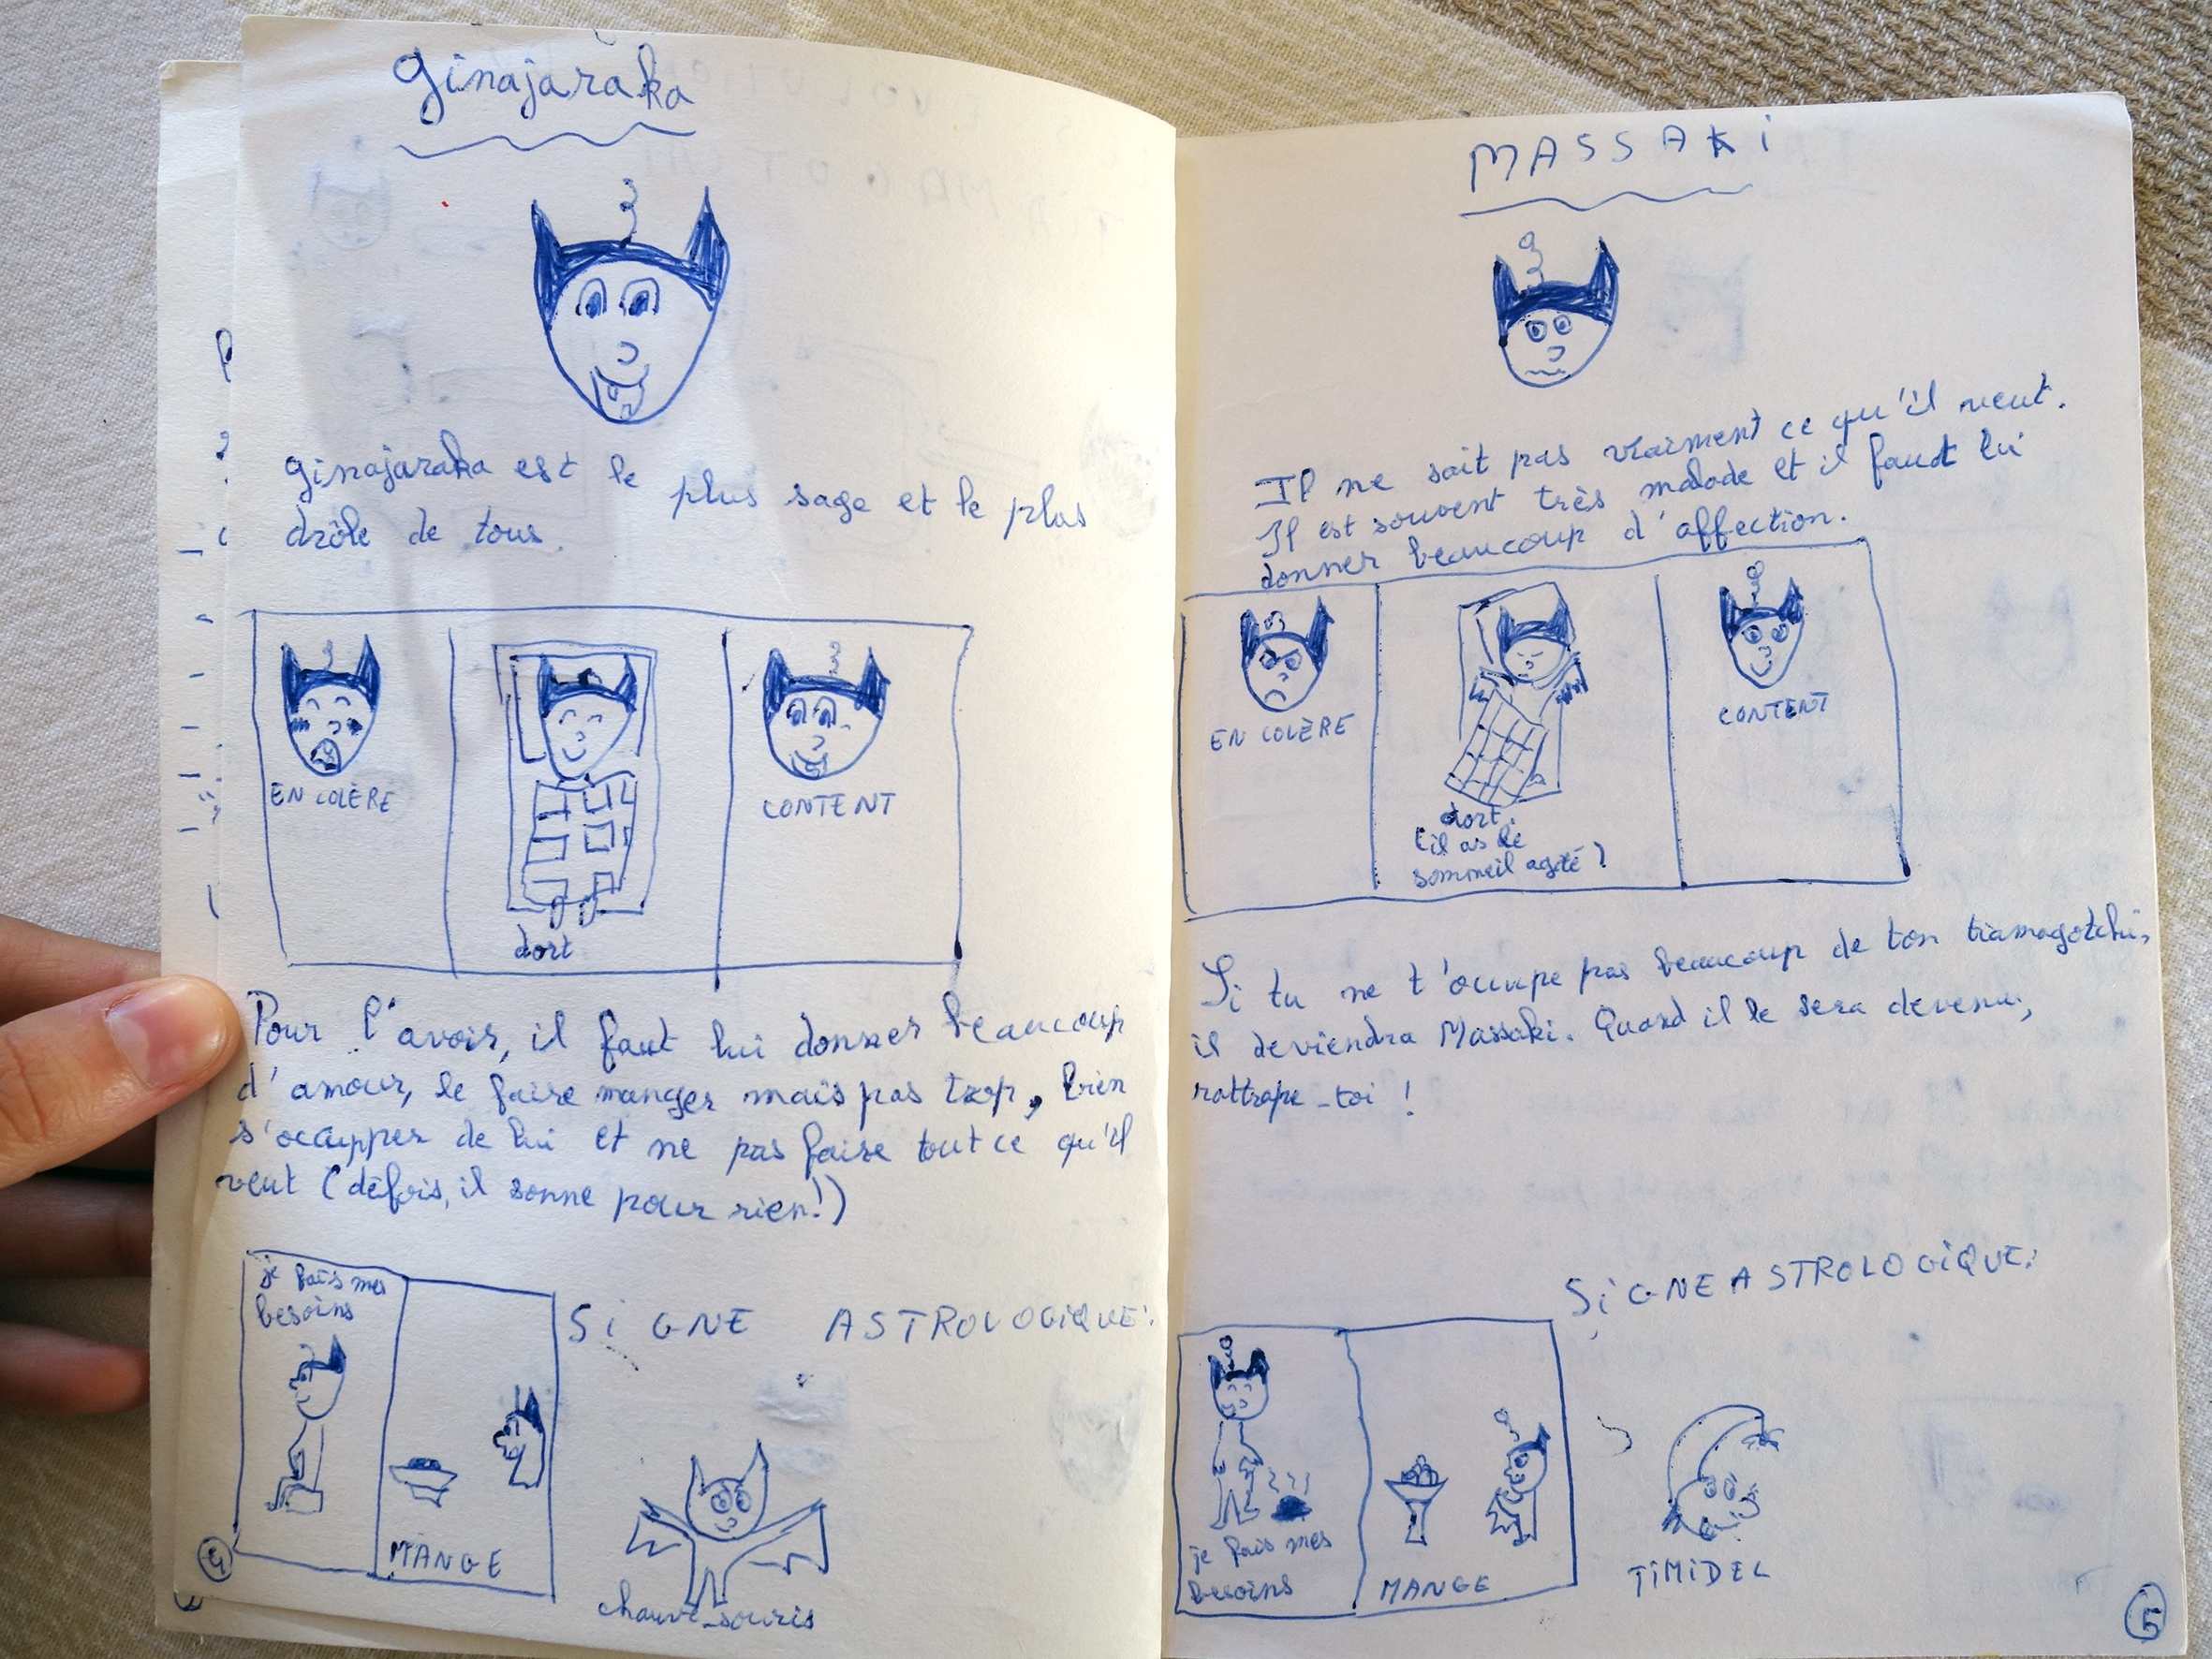 Ginajaraka
Ginajaraka est le plus sage et le plus
drôle de tous.
EN COLÈRE
dort
CONTENT
Pour l'avoir, il faut lui donner beaucoup
d'amour, le faire manger mais pas trop, bien
s'occupper de lui et ne pas faire tout ce qu'il
veut (défois, il sonne pour rien!)
je fais mes
besoins
MANGE
SIGNE ASTROLOGIQUE:
chauve-souris
4
MASSAKI
Il ne sait pas vraiment ce qu'il veut.
Il est souvent très malade et il faut lui
donner beaucoup d'affection.
EN COLÈRE
dort
(il as le
sommeil agité)
CONTENT
Si tu ne t'occupe pas beaucoup de ton tiamagotchi,
il deviendra Massaki. Quand il le sera devenu,
rattrape-toi !
SIGNE ASTROLOGIQUE:
je fais mes
besoins
MANGE
TIMIDEL
5